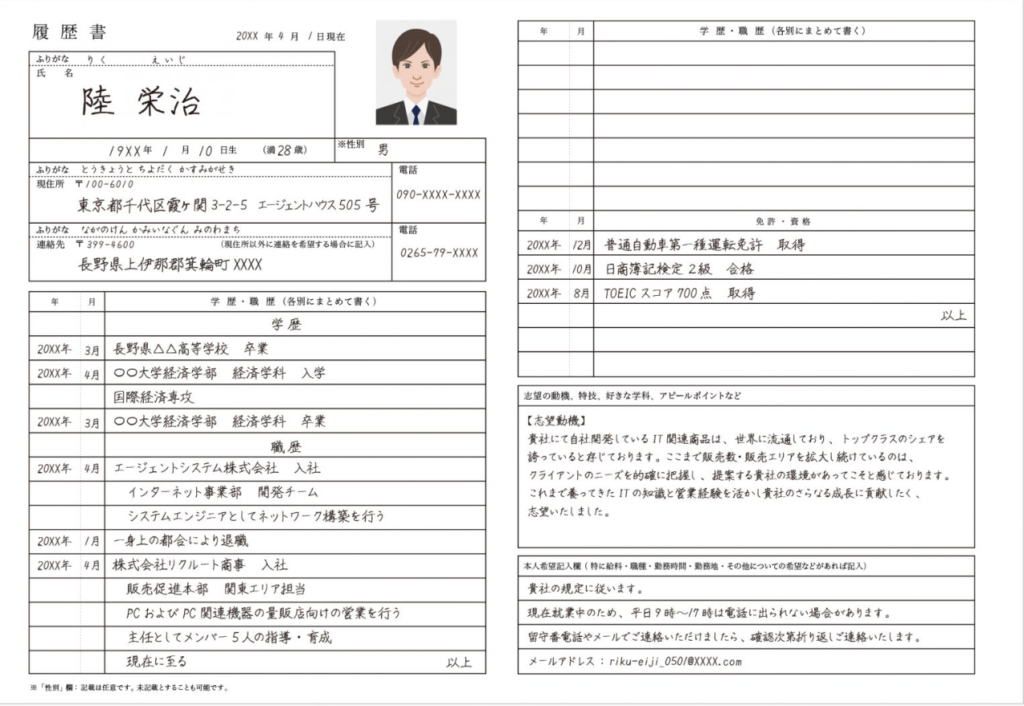 履歴書
20XX 年 4 月 1 日現在
ふりがな りく えいじ
氏 名
陸 栄治
19XX 年 1 月 10 日生 (満 28 歳)
※性別 男
ふりがな とうきょうと ちよだく かすみがせき
現住所 〒100-6010
東京都千代区霞ヶ関 3-2-5 エージェントハウス 505 号
電話
090-XXXX-XXXX
ふりがな ながのけん かみいなぐん みのわまち
連絡先 〒399-4600 (現住所以外に連絡を希望する場合に記入)
長野県上伊那郡箕輪町 XXXX
電話
0265-79-XXXX
年 月 学 歴・職 歴 (各別にまとめて書く)
学 歴
20XX年 3月 長野県△△高等学校 卒業
20XX年 4月 〇〇大学経済学部 経済学科 入学
国際経済専攻
20XX年 3月 〇〇大学経済学部 経済学科 卒業
職 歴
20XX年 4月 エージェントシステム株式会社 入社
インターネット事業部 開発チーム
システムエンジニアとしてネットワーク構築を行う
20XX年 1月 一身上の都合により退職
20XX年 4月 株式会社リクルート商事 入社
販売促進本部 関東エリア担当
PC および PC 関連機器の量販店向けの営業を行う
主任としてメンバー 5 人の指導・育成
現在に至る 以上
※「性別」欄:記載は任意です。未記載とすることも可能です。
年 月 学 歴・職 歴 (各別にまとめて書く)
年 月 免 許・資 格
20XX年 12月 普通自動車第一種運転免許 取得
20XX年 10月 日商簿記検定 2 級 合格
20XX年 8月 TOEIC スコア 700 点 取得
以上
志望の動機、特技、好きな学科、アピールポイントなど
【志望動機】
貴社にて自社開発している IT 関連商品は、世界に流通しており、トップクラスのシェアを
誇っていると存じております。ここまで販売数・販売エリアを拡大し続けているのは、
クライアントのニーズを的確に把握し、提案する貴社の環境があってこそと感じております。
これまで養ってきた IT の知識と営業経験を活かし貴社のさらなる成長に貢献したく、
志望いたしました。
本人希望記入欄 (特に給料・職種・勤務時間・勤務地・その他についての希望などがあれば記入)
貴社の規定に従います。
現在就業中のため、平日 9 時〜17 時は電話に出られない場合があります。
留守番電話やメールでご連絡いただけましたら、確認次第折り返しご連絡いたします。
メールアドレス : riku-eiji_0501@XXXX.com